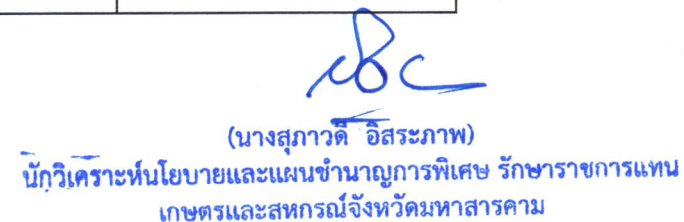 (นางสุภาวดี อิสระภาพ)
นักวิเคราะห์นโยบายและแผนชำนาญการพิเศษ รักษาราชการแทน
เกษตรและสหกรณ์จังหวัดมหาสารคาม